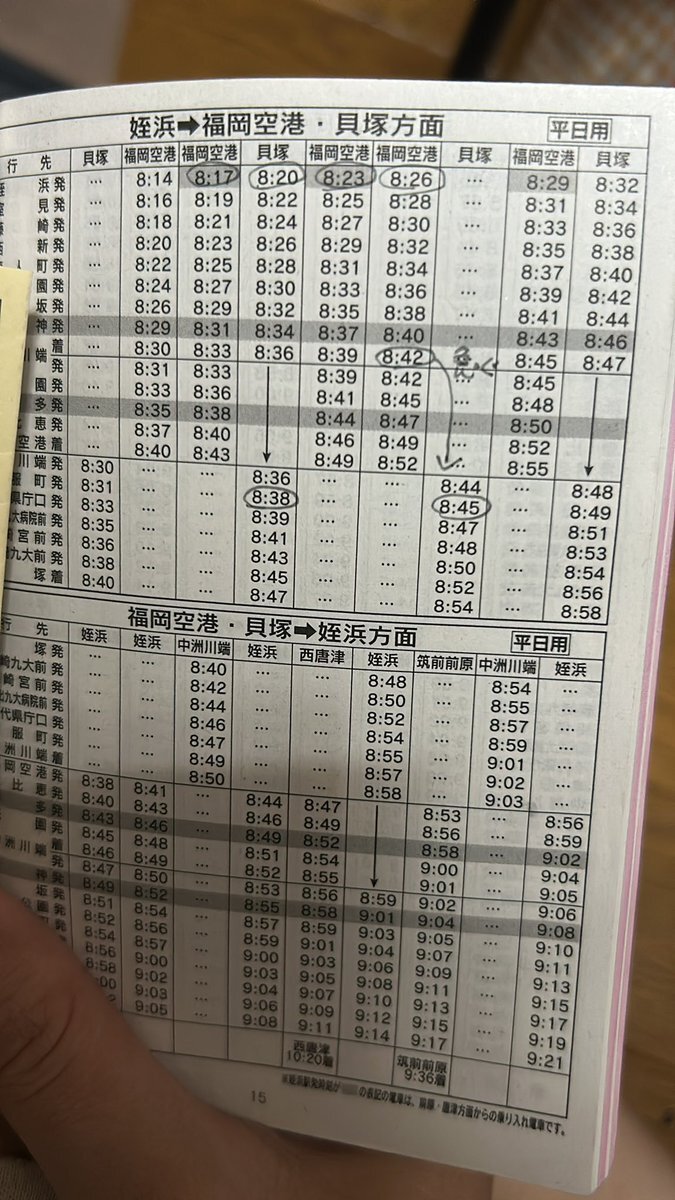 姪浜➡福岡空港・貝塚方面 平日用
行先 貝塚 福岡空港 福岡空港 貝塚 福岡空港 福岡空港 貝塚 福岡空港 貝塚
浜発 … 8:14 8:17 8:20 8:23 8:26 … 8:29 8:32
見発 … 8:16 8:19 8:22 8:25 8:28 … 8:31 8:34
崎発 … 8:18 8:21 8:24 8:27 8:30 … 8:33 8:36
新発 … 8:20 8:23 8:26 8:29 8:32 … 8:35 8:38
町発 … 8:22 8:25 8:28 8:31 8:34 … 8:37 8:40
園発 … 8:24 8:27 8:30 8:33 8:36 … 8:39 8:42
坂発 … 8:26 8:29 8:32 8:35 8:38 … 8:41 8:44
神発 … 8:29 8:31 8:34 8:37 8:40 … 8:43 8:46
川端着 … 8:30 8:33 8:36 8:39 8:42 … 8:45 8:47
発 … 8:31 8:33 8:39 8:42 … 8:45
園発 … 8:33 8:36 8:41 8:45 … 8:48
多発 … 8:35 8:38 8:44 8:47 … 8:50
比恵発 … 8:37 8:40 8:46 8:49 … 8:52
空港着 … 8:40 8:43 8:49 8:52 … 8:55
川端発 8:30 … … 8:36 … … 8:44 … 8:48
服町発 8:31 … … 8:38 … … 8:45 … 8:49
県庁口発 8:33 … … 8:39 … … 8:47 … 8:51
九大病院前発 8:35 … … 8:41 … … 8:48 … 8:53
宮前発 8:36 … … 8:43 … … 8:50 … 8:54
九大前発 8:38 … … 8:45 … … 8:52 … 8:56
塚着 8:40 … … 8:47 … … 8:54 … 8:58
福岡空港・貝塚➡姪浜方面 平日用
行先 姪浜 姪浜 中洲川端 姪浜 西唐津 姪浜 筑前前原 中洲川端 姪浜
塚発 … … 8:40 … … 8:48 … 8:54 …
崎九大前発 … … 8:42 … … 8:50 … 8:55 …
崎宮前発 … … 8:44 … … 8:52 … 8:57 …
九大病院前発 … … 8:46 … … 8:54 … 8:59 …
代県庁口発 … … 8:47 … … 8:55 … 9:01 …
服町発 … … 8:49 … … 8:57 … 9:02 …
洲川端着 … … 8:50 … … 8:58 … 9:03 …
岡空港発 8:38 8:41 … 8:44 8:47 8:53 … 8:56
比恵発 8:40 8:43 … 8:46 8:49 8:56 … 8:59
多発 8:43 8:46 … 8:49 8:52 8:58 … 9:02
園発 8:45 8:48 … 8:51 8:54 9:00 … 9:04
洲川端着 8:46 8:49 … 8:52 8:55 9:01 … 9:05
発 8:47 8:50 … 8:53 8:56 8:59 9:02 … 9:06
神発 8:49 8:52 … 8:55 8:58 9:01 9:04 … 9:08
坂発 8:51 8:54 … 8:57 8:59 9:03 9:05 … 9:10
公園発 8:52 8:56 … 8:59 9:01 9:04 9:07 … 9:11
町発 8:54 8:57 … 9:00 9:03 9:06 9:09 … 9:13
8:56 9:00 … 9:03 9:05 9:08 9:11 … 9:15
8:58 9:02 … 9:04 9:07 9:10 9:13 … 9:17
:00 9:03 … 9:06 9:09 9:12 9:15 … 9:19
9:05 … 9:08 9:11 9:14 9:17 … 9:21
西唐津 10:20着
筑前前原 9:36着
※姪浜駅発時刻が の表記の電車は、前原・唐津方面からの乗り入れ電車です。
15